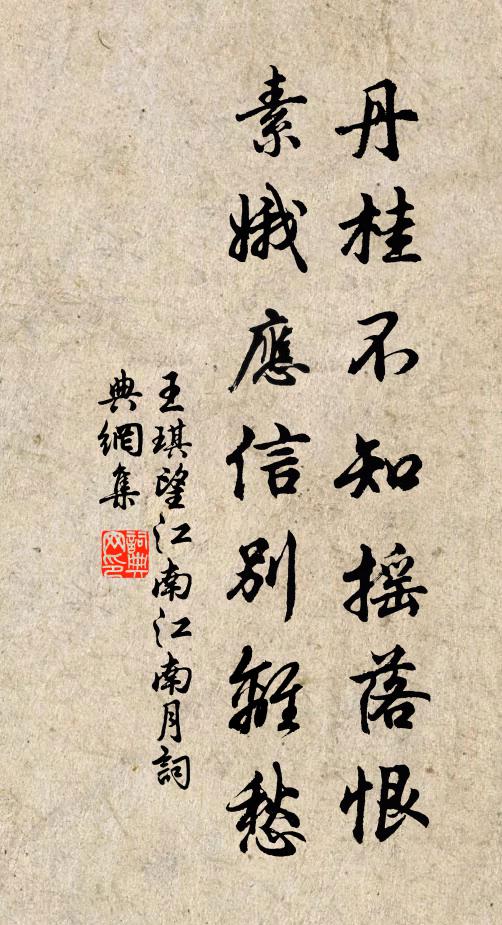 丹桂不知摇落恨
素娥應信別離愁
王琪望江南江南月詞
典網集
詞典
网印